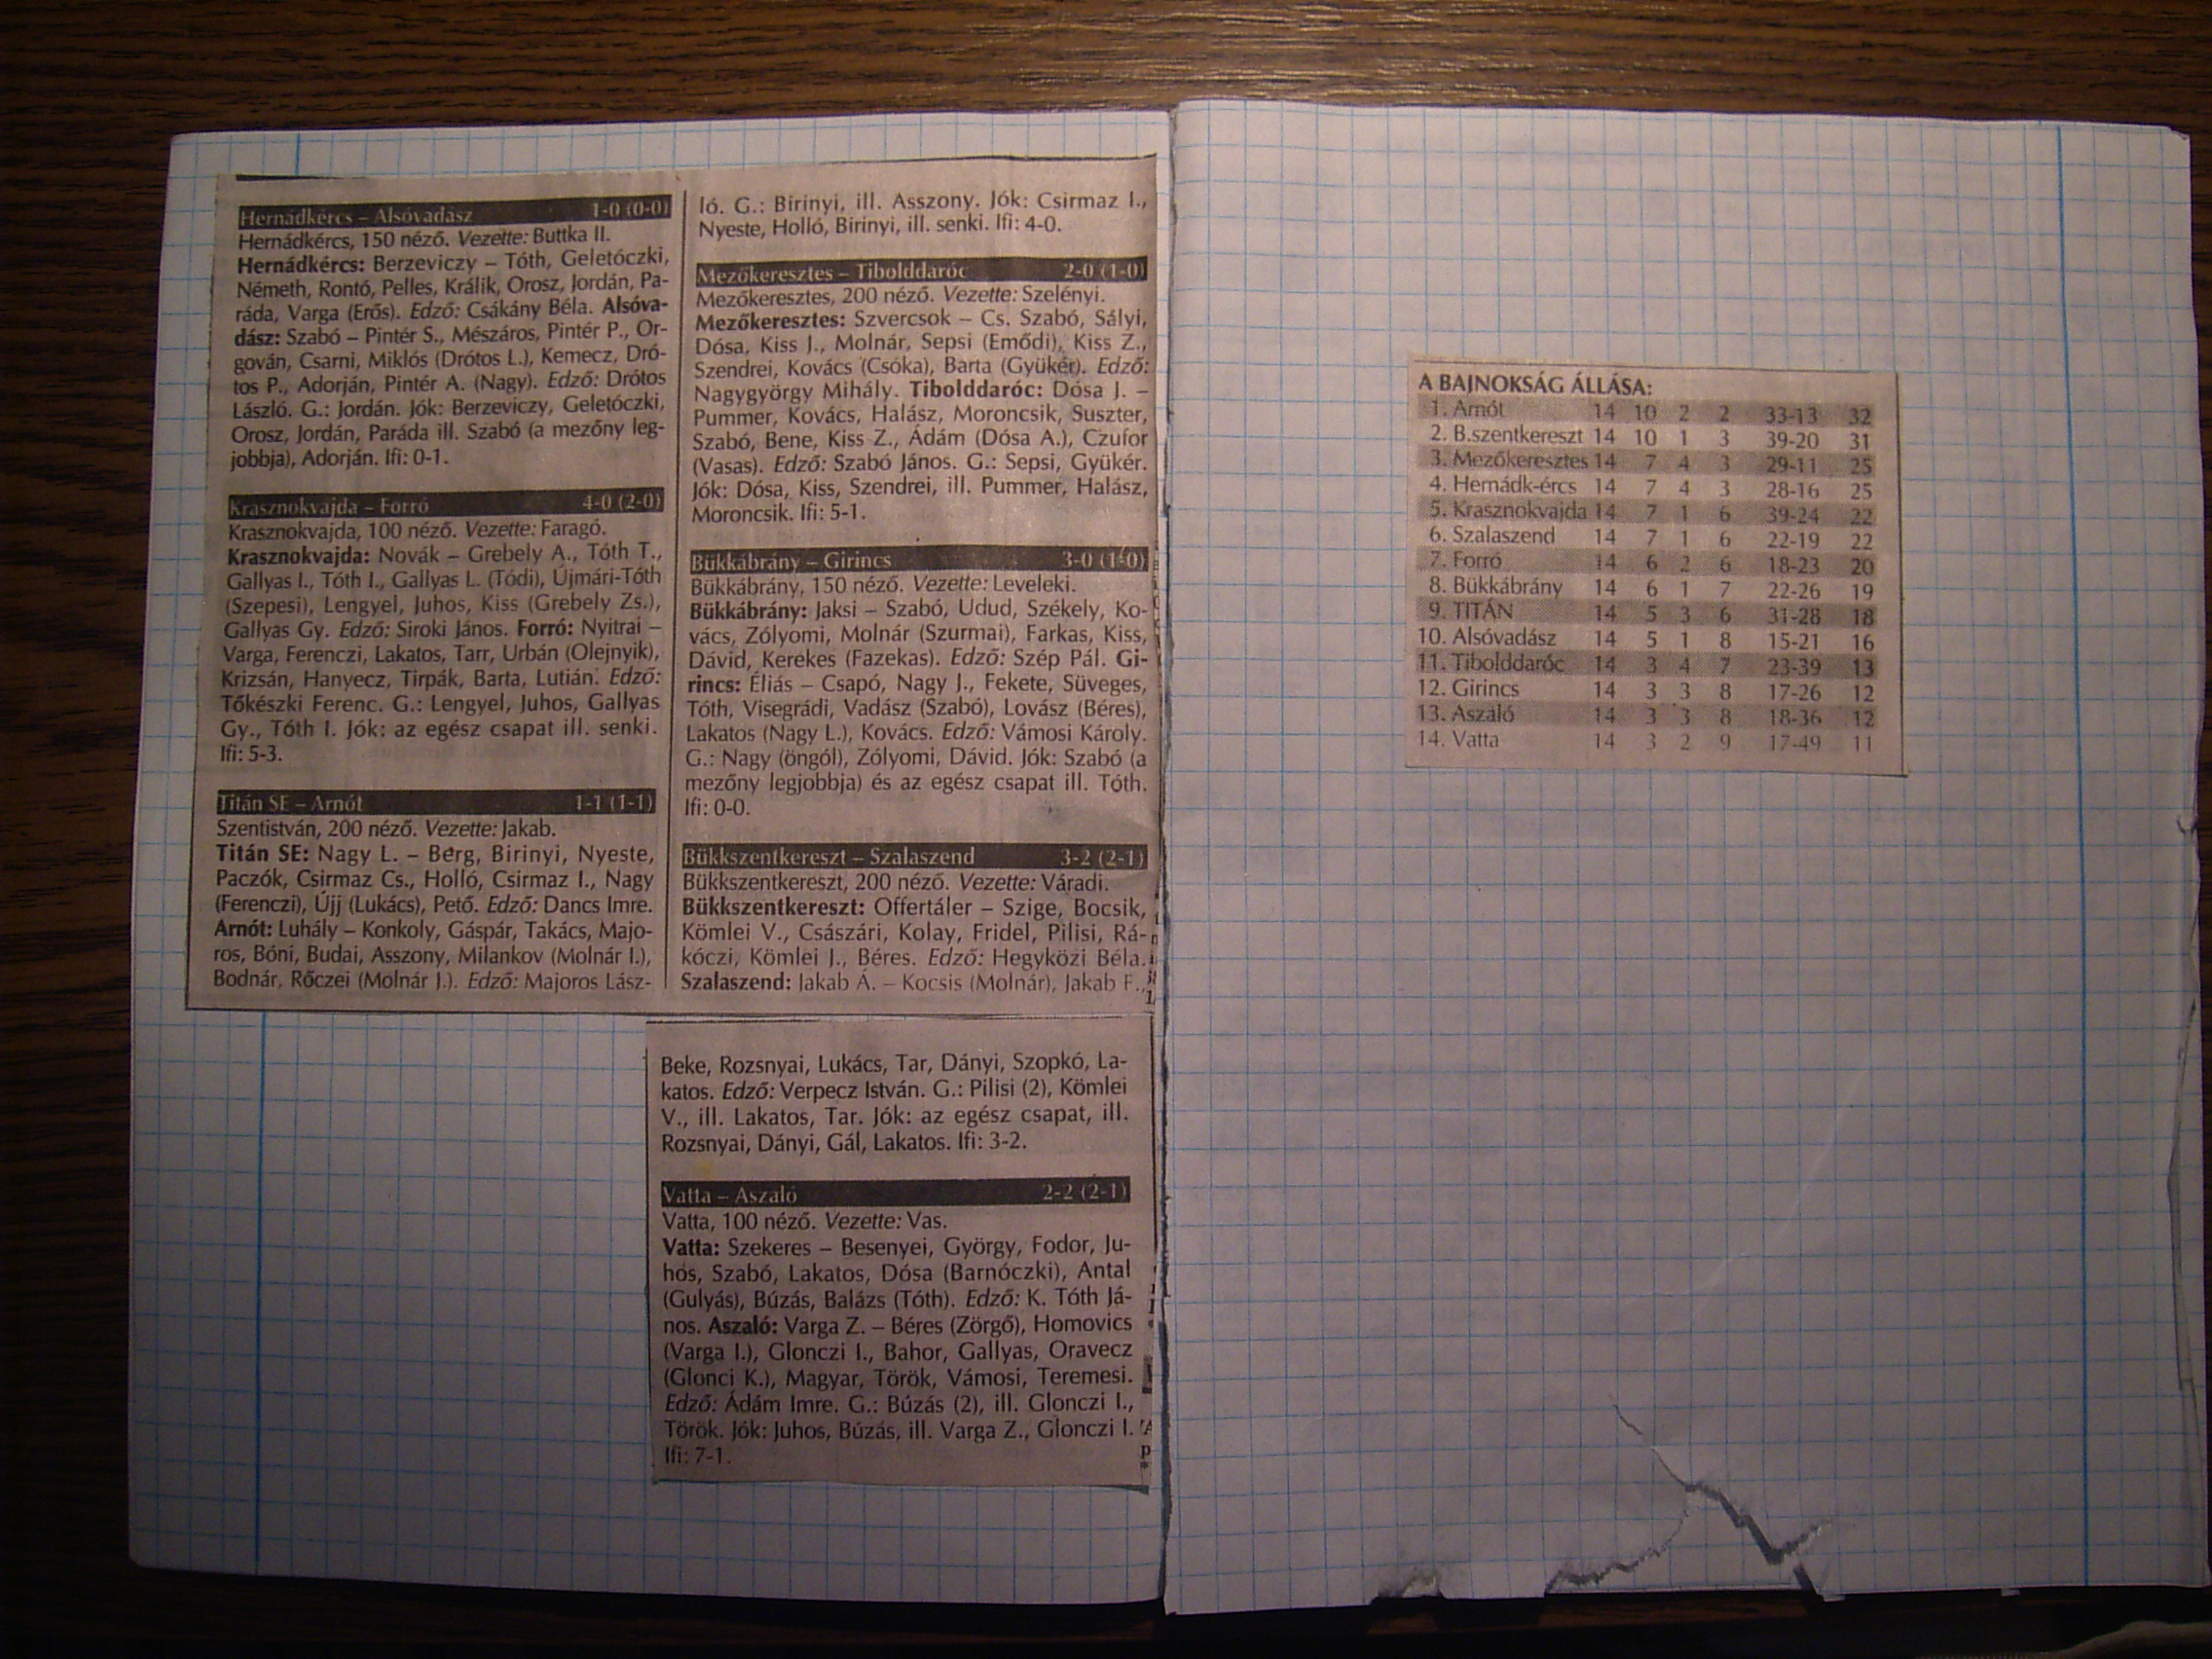 Hernádkércs – Alsóvadász 1-0 (0-0)
Hernádkércs, 150 néző. Vezette: Buttka II.
Hernádkércs: Berzeviczy – Tóth, Geletóczki,
Németh, Rontó, Pelles, Králik, Orosz, Jordán, Pa-
ráda, Varga (Erős). Edző: Csákány Béla. Alsóva-
dász: Szabó – Pintér S., Mészáros, Pintér P., Or-
gován, Csarni, Miklós (Drótos L.), Kemecz, Dró-
tos P., Adorján, Pintér A. (Nagy). Edző: Drótos
László. G.: Jordán. Jók: Berzeviczy, Geletóczki,
Orosz, Jordán, Paráda ill. Szabó (a mezőny leg-
jobbja), Adorján. Ifi: 0-1.
Krasznokvajda – Forró 4-0 (2-0)
Krasznokvajda, 100 néző. Vezette: Faragó.
Krasznokvajda: Novák – Grebely A., Tóth T.,
Gallyas I., Tóth I., Gallyas L. (Tódi), Újmári-Tóth
(Szepesi), Lengyel, Juhos, Kiss (Grebely Zs.),
Gallyas Gy. Edző: Siroki János. Forró: Nyitrai –
Varga, Ferenczi, Lakatos, Tarr, Urbán (Olejnyik),
Krizsán, Hanyecz, Tirpák, Barta, Lutián. Edző:
Tőkészki Ferenc. G.: Lengyel, Juhos, Gallyas
Gy., Tóth I. Jók: az egész csapat ill. senki.
Ifi: 5-3.
Titán SE – Arnót 1-1 (1-1)
Szentistván, 200 néző. Vezette: Jakab.
Titán SE: Nagy L. – Berg, Birinyi, Nyeste,
Paczók, Csirmaz Cs., Holló, Csirmaz I., Nagy
(Ferenczi), Újj (Lukács), Pető. Edző: Dancs Imre.
Arnót: Luhály – Konkoly, Gáspár, Takács, Majo-
ros, Bóni, Budai, Asszony, Milankov (Molnár I.),
Bodnár, Rőczei (Molnár J.). Edző: Majoros Lász-
ló. G.: Birinyi, ill. Asszony. Jók: Csirmaz I.,
Nyeste, Holló, Birinyi, ill. senki. Ifi: 4-0.
Mezőkeresztes – Tibolddaróc 2-0 (1-0)
Mezőkeresztes, 200 néző. Vezette: Szelényi.
Mezőkeresztes: Szvercsok – Cs. Szabó, Sályi,
Dósa, Kiss J., Molnár, Sepsi (Emődi), Kiss Z.,
Szendrei, Kovács (Csóka), Barta (Gyükér). Edző:
Nagygyörgy Mihály. Tibolddaróc: Dósa J. –
Pummer, Kovács, Halász, Moroncsik, Suszter,
Szabó, Bene, Kiss Z., Ádám (Dósa A.), Czufor
(Vasas). Edző: Szabó János. G.: Sepsi, Gyükér.
Jók: Dósa, Kiss, Szendrei, ill. Pummer, Halász,
Moroncsik. Ifi: 5-1.
Bükkábrány – Girincs 3-0 (1-0)
Bükkábrány, 150 néző. Vezette: Leveleki.
Bükkábrány: Jaksi – Szabó, Udud, Székely, Ko-
vács, Zólyomi, Molnár (Szurmai), Farkas, Kiss,
Dávid, Kerekes (Fazekas). Edző: Szép Pál. Gi-
rincs: Éliás – Csapó, Nagy J., Fekete, Süveges,
Tóth, Visegrádi, Vadász (Szabó), Lovász (Béres),
Lakatos (Nagy L.), Kovács. Edző: Vámosi Károly.
G.: Nagy (öngól), Zólyomi, Dávid. Jók: Szabó (a
mezőny legjobbja) és az egész csapat ill. Tóth.
Ifi: 0-0.
Bükkszentkereszt – Szalaszend 3-2 (2-1)
Bükkszentkereszt, 200 néző. Vezette: Váradi.
Bükkszentkereszt: Offertáler – Szige, Bocsik,
Kömlei V., Császári, Kolay, Fridel, Pilisi, Rá-
kóczi, Kömlei J., Béres. Edző: Hegyközi Béla.
Szalaszend: Jakab Á. – Kocsis (Molnár), Jakab F.,
Beke, Rozsnyai, Lukács, Tar, Dányi, Szopkó, La-
katos. Edző: Verpecz István. G.: Pilisi (2), Kömlei
V., ill. Lakatos, Tar. Jók: az egész csapat, ill.
Rozsnyai, Dányi, Gál, Lakatos. Ifi: 3-2.
Vatta – Aszaló 2-2 (2-1)
Vatta, 100 néző. Vezette: Vas.
Vatta: Szekeres – Besenyei, György, Fodor, Ju-
hos, Szabó, Lakatos, Dósa (Barnóczki), Antal
(Gulyás), Búzás, Balázs (Tóth). Edző: K. Tóth Já-
nos. Aszaló: Varga Z. – Béres (Zörgő), Homovics
(Varga I.), Glonczi I., Bahor, Gallyas, Oravecz
(Glonci K.), Magyar, Török, Vámosi, Teremesi.
Edző: Ádám Imre. G.: Búzás (2), ill. Glonczi I.,
Török. Jók: Juhos, Búzás, ill. Varga Z., Glonczi I.
Ifi: 7-1.
A BAJNOKSÁG ÁLLÁSA:
1. Arnót 14 10 2 2 33-13 32
2. B.szentkereszt 14 10 1 3 39-20 31
3. Mezőkeresztes 14 7 4 3 29-11 25
4. Hernádk-ércs 14 7 4 3 28-16 25
5. Krasznokvajda 14 7 1 6 39-24 22
6. Szalaszend 14 7 1 6 22-19 22
7. Forró 14 6 2 6 18-23 20
8. Bükkábrány 14 6 1 7 22-26 19
9. TITÁN 14 5 3 6 31-28 18
10. Alsóvadász 14 5 1 8 15-21 16
11. Tibolddaróc 14 3 4 7 23-39 13
12. Girincs 14 3 3 8 17-26 12
13. Aszaló 14 3 3 8 18-36 12
14. Vatta 14 3 2 9 17-49 11